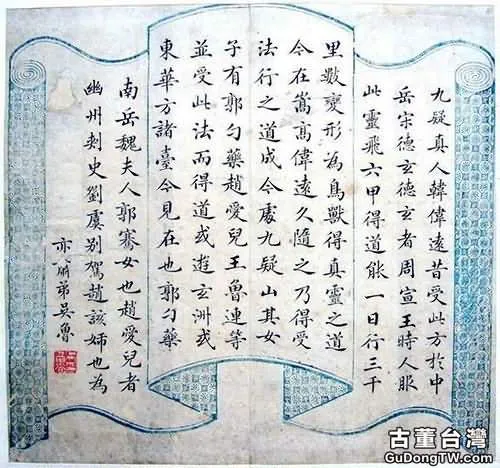 九疑真人韓偉遠昔受此方於中
岳宋德玄德玄者周宣王時人服
此靈飛六甲得道能一日行三千
里數變形為鳥獸得真靈之道
今在嵩高偉遠久隨之乃得受
法行之道成今處九疑山其女
子有郭勺藥趙愛兒王魯連等
並受此法而得道或遊玄洲或
東華方諸臺今見在也郭勺藥
南岳魏夫人郭騫女也趙愛兒者
幽州刺史劉虞別駕趙該姊也為
弟吳魯
古董台灣
GuDongTW.com